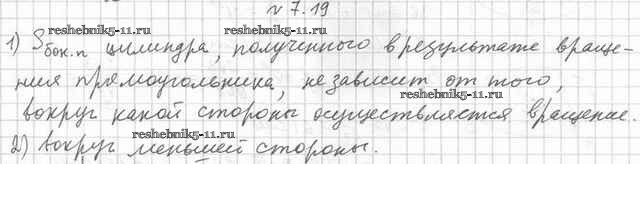 № 7.19
reshebnik5-11.ru
reshebnik5-11.ru
1) Sбок.п цилиндра, полученного в результате враще-
ния прямоугольника, не зависит от того,
reshebnik5-11.ru
reshebnik5-11.ru
вокруг какой стороны осуществляется вращение.
reshebnik5-11.ru
2) вокруг меньшей стороны.